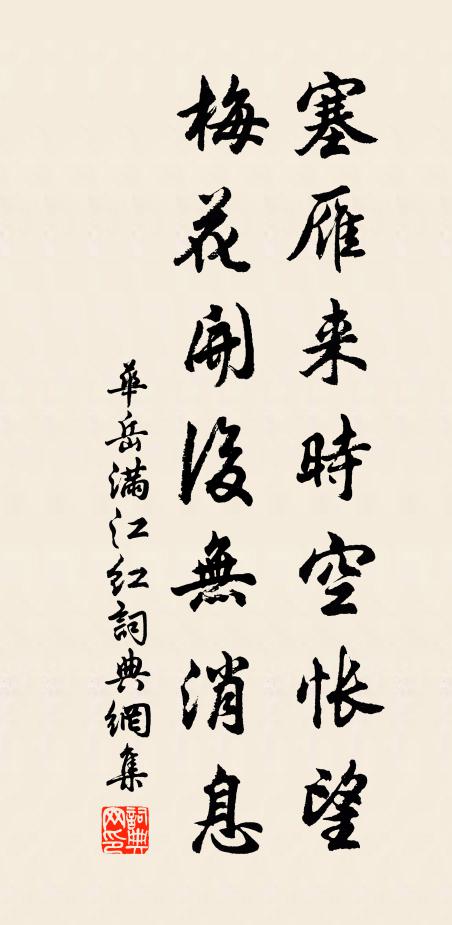 塞雁来時空悵望
梅花開後無消息
華岳滿江紅詞典網集
詞典網印